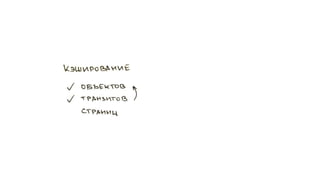 КЭШИРОВАНИЕ
✓ ОБЪЕКТОВ
✓ ТРАНЗИТОВ
СТРАНИЦ